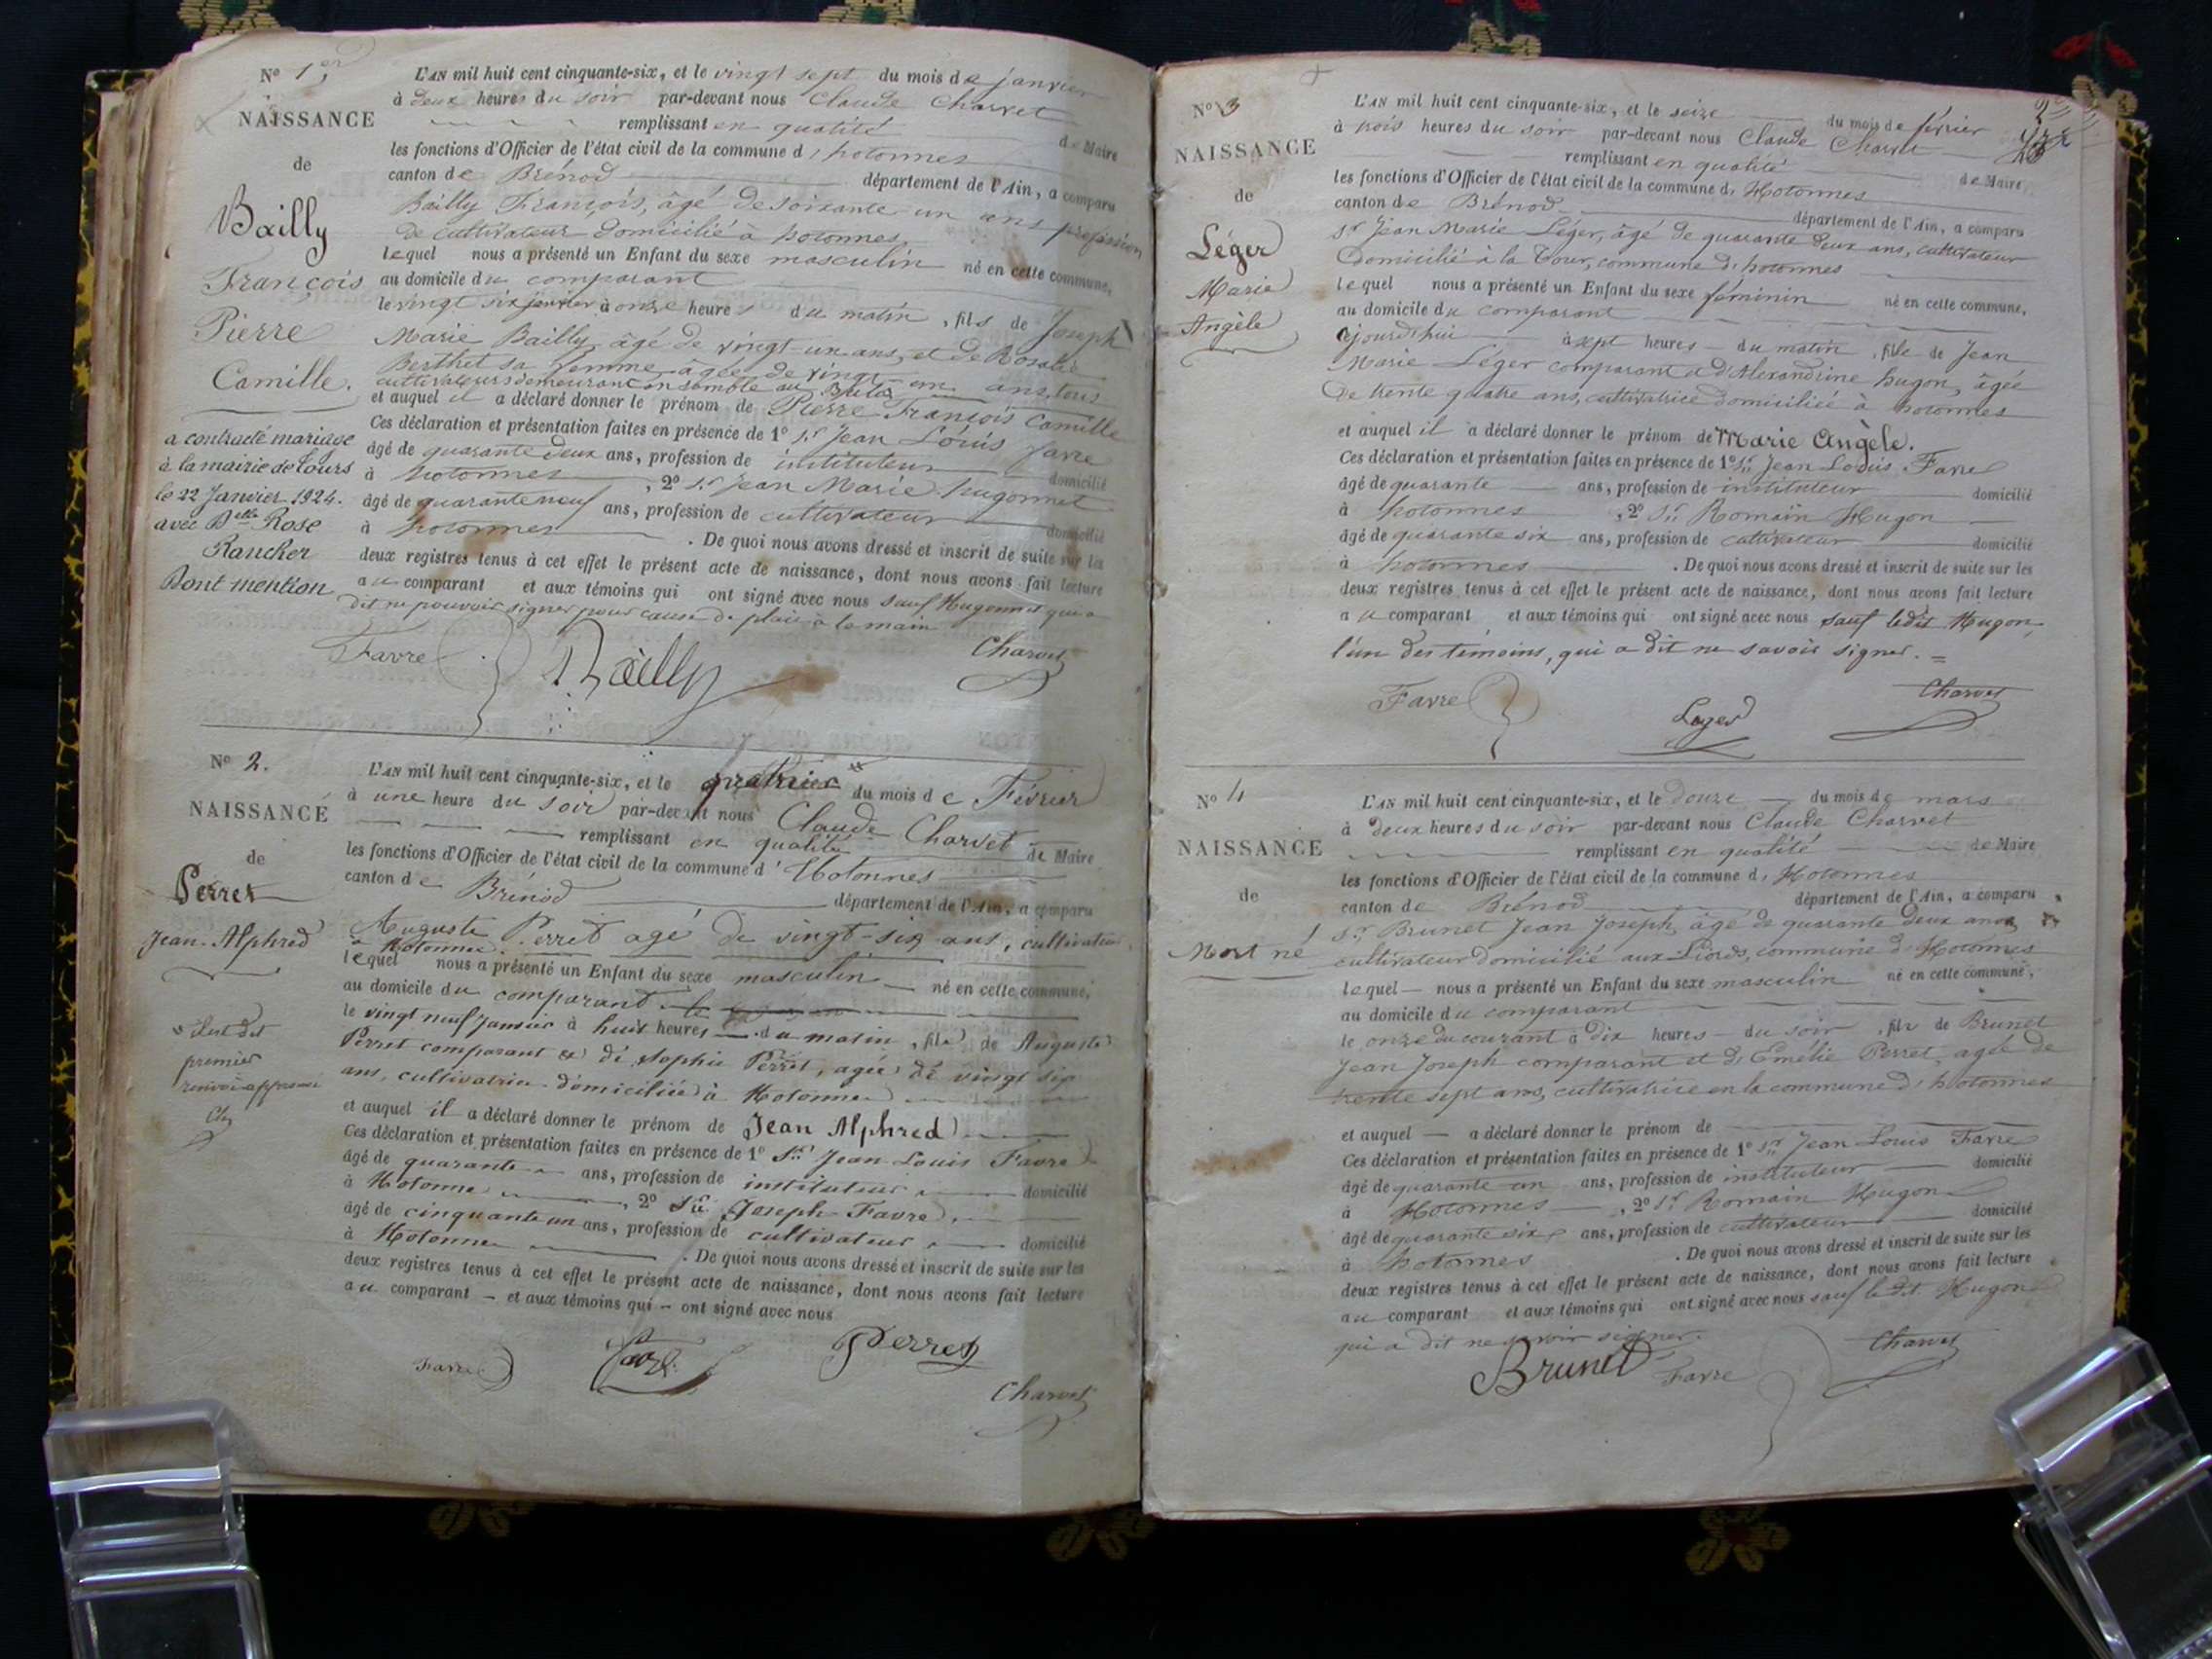 N° 1er
NAISSANCE
de
Bailly
François
Pierre
Camille.
a contracté mariage
à la mairie de Tours
le 22 Janvier 1924.
avec Delle Rose
Rancher
Dont mention
L'AN mil huit cent cinquante-six, et le vingt sept du mois de janvier
à deux heures du soir par-devant nous Claude Charvet
remplissant en qualité de Maire
les fonctions d'Officier de l'état civil de la commune d'hotonnes
canton de Brénod département de l'Ain, a comparu
Bailly François, âgé de soixante un ans profession
de cultivateur domicilié à hotonnes
lequel nous a présenté un Enfant du sexe masculin né en cette commune,
au domicile du comparant
le vingt six janvier à onze heures du matin, fils de Joseph
Marie Bailly, âgé de vingt-un ans, et de Rosalie
Berthet sa femme âgée de vingt-un ans, tous
cultivateurs demeurant ensemble au
et auquel il a déclaré donner le prénom de Pierre François Camille
Ces déclaration et présentation faites en présence de 1° Sr Jean Louis Favre
âgé de quarante deux ans, profession de instituteur domicilié
à hotonnes, 2° Sr Jean Marie hugonnet
âgé de quarante neuf ans, profession de cultivateur domicilié
à hotonnes. De quoi nous avons dressé et inscrit de suite sur les
deux registres tenus à cet effet le présent acte de naissance, dont nous avons fait lecture
au comparant et aux témoins qui ont signé avec nous sauf Hugonnet qui a
dit ne pouvoir signer pour cause de plaie à la main
Favre Bailly Charvet
N° 2.
NAISSANCE
de
Perret
Jean-Alphred
premier
renvoi approuvé
Ch
L'AN mil huit cent cinquante-six, et le du mois de Février
à une heure du soir par-devant nous Claude Charvet
remplissant en qualité de Maire
les fonctions d'Officier de l'état civil de la commune d'Hotonnes
canton de Brénod département de l'Ain, a comparu
Auguste Perret agé de vingt-six ans, cultivateur
à Hotonnes
lequel nous a présenté un Enfant du sexe masculin né en cette commune,
au domicile du comparant
le vingt neuf Janvier à huit heures du matin, fils de Auguste
Perret comparant et de Sophie Perret, agée de vingt six
ans, cultivatrice domiciliée à Hotonnes
et auquel il a déclaré donner le prénom de Jean Alphred
Ces déclaration et présentation faites en présence de 1° Sr Jean Louis Favre
âgé de quarante ans, profession de instituteur domicilié
à Hotonnes, 2° Sr Joseph Favre,
âgé de cinquante un ans, profession de cultivateur domicilié
à Hotonnes. De quoi nous avons dressé et inscrit de suite sur les
deux registres tenus à cet effet le présent acte de naissance, dont nous avons fait lecture
au comparant et aux témoins qui ont signé avec nous
Favre Favre Perret
Charvet
N° 3
NAISSANCE
de
Léger
Marie
Angèle
L'AN mil huit cent cinquante-six, et le seize du mois de février
à trois heures du soir par-devant nous Claude Charvet
remplissant en qualité de Maire
les fonctions d'Officier de l'état civil de la commune d'Hotonnes
canton de Brénod département de l'Ain, a comparu
Sr Jean Marie Léger, âgé de quarante deux ans, cultivateur
domicilié à la Cour, commune d'hotonnes
lequel nous a présenté un Enfant du sexe féminin né en cette commune,
au domicile du comparant
ajourd'hui à sept heures du matin, fille de Jean
Marie Léger comparant et d'Alexandrine hugon, âgée
de trente quatre ans, cultivatrice domiciliée à hotonnes
et auquel il a déclaré donner le prénom de Marie Angèle.
Ces déclaration et présentation faites en présence de 1° Sr Jean Louis Favre
âgé de quarante ans, profession de instituteur domicilié
à hotonnes, 2° Sr Romain Hugon
âgé de quarante six ans, profession de cultivateur domicilié
à hotonnes. De quoi nous avons dressé et inscrit de suite sur les
deux registres tenus à cet effet le présent acte de naissance, dont nous avons fait lecture
au comparant et aux témoins qui ont signé avec nous sauf ledit Hugon,
l'un des témoins, qui a dit ne savoir signer.
Favre Léger Charvet
N° 4
NAISSANCE
de
Mort né
L'AN mil huit cent cinquante-six, et le douze du mois de mars
à deux heures du soir par-devant nous Claude Charvet
remplissant en qualité de Maire
les fonctions d'Officier de l'état civil de la commune d'Hotonnes
canton de Brénod département de l'Ain, a comparu
Sr Brunet Jean Joseph, âgé de quarante deux ans
cultivateur domicilié aux commune d'Hotonnes
lequel nous a présenté un Enfant du sexe masculin né en cette commune,
au domicile du comparant
le onze du courant à dix heures du soir, fils de Brunet
Jean Joseph comparant et d'Emélie Perret, agée de
trente sept ans, cultivatrice en la commune d'hotonnes
et auquel a déclaré donner le prénom de
Ces déclaration et présentation faites en présence de 1° Sr Jean Louis Favre
âgé de quarante un ans, profession de instituteur domicilié
à Hotonnes, 2° Sr Romain Hugon
âgé de quarante six ans, profession de cultivateur domicilié
à hotonnes. De quoi nous avons dressé et inscrit de suite sur les
deux registres tenus à cet effet le présent acte de naissance, dont nous avons fait lecture
au comparant et aux témoins qui ont signé avec nous sauf ledit Hugon
qui a dit ne savoir signer.
Brunet Favre Charvet